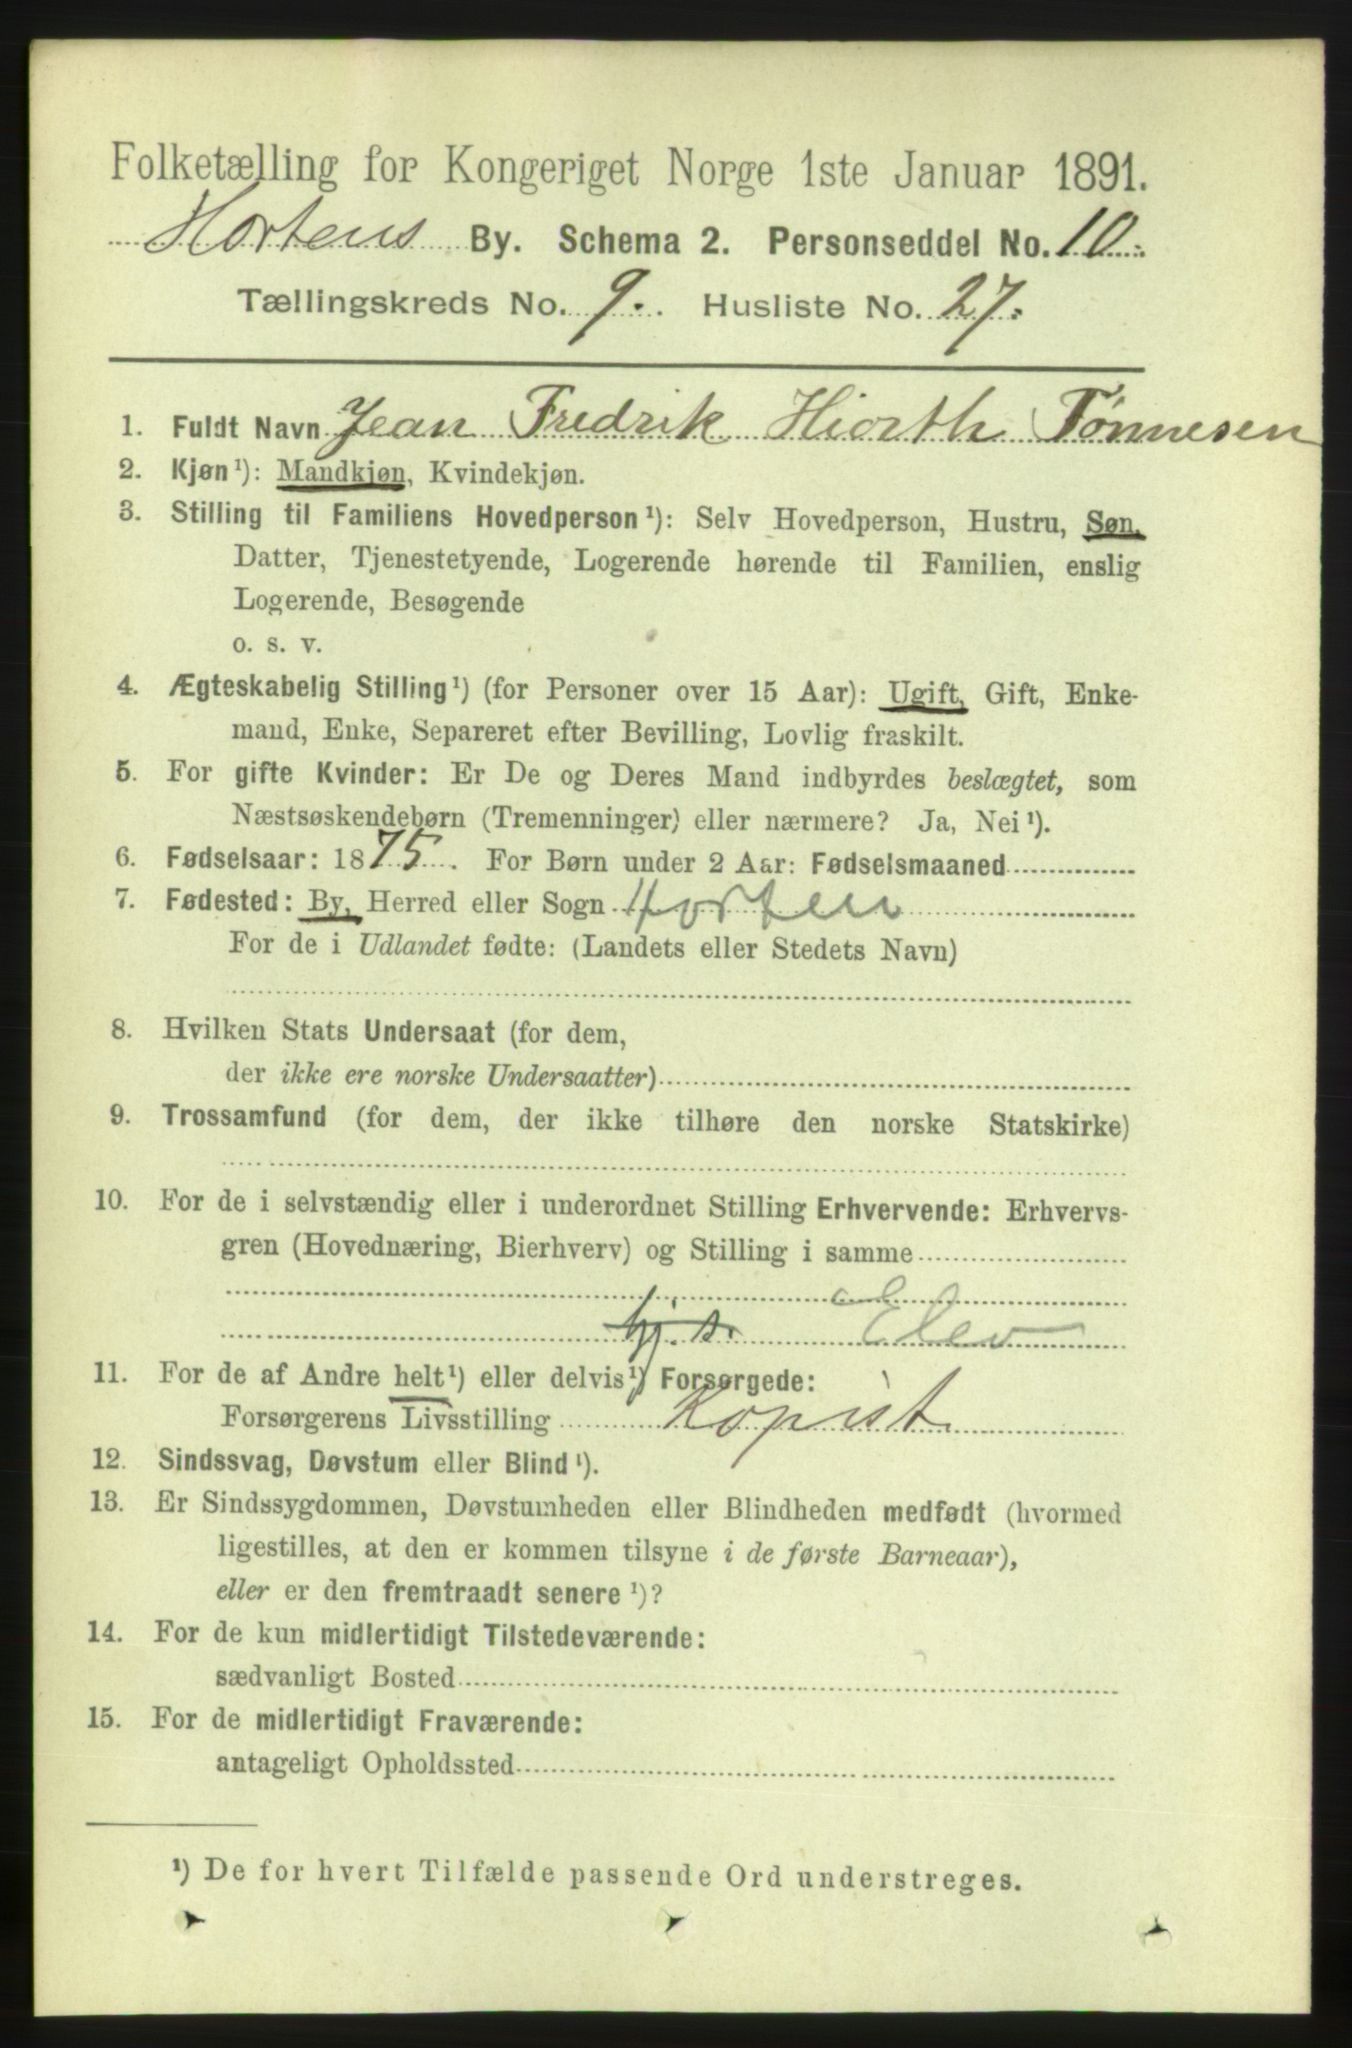 Folketælling for Kongeriget Norge 1ste Januar 1891.
Hortens By. Schema 2. Personseddel No. 10.
Tællingskreds No. 9. Husliste No. 27.
1. Fuldt Navn Jean Fredrik Hiorth Tønnesen
2. Kjøn¹): Mandkjøn, Kvindekjøn.
3. Stilling til Familiens Hovedperson¹): Selv Hovedperson, Hustru, Søn,
Datter, Tjenestetyende, Logerende hørende til Familien, enslig
Logerende, Besøgende
o. s. v.
4. Ægteskabelig Stilling¹) (for Personer over 15 Aar): Ugift, Gift, Enke-
mand, Enke, Separeret efter Bevilling, Lovlig fraskilt.
5. For gifte Kvinder: Er De og Deres Mand indbyrdes beslægtet, som
Næstsøskendebørn (Tremenninger) eller nærmere? Ja, Nei¹).
6. Fødselsaar: 1875. For Børn under 2 Aar: Fødselsmaaned
7. Fødested: By, Herred eller Sogn Horten
For de i Udlandet fødte: (Landets eller Stedets Navn)
8. Hvilken Stats Undersaat (for dem,
der ikke ere norske Undersaatter)
9. Trossamfund (for dem, der ikke tilhøre den norske Statskirke)
10. For de i selvstændig eller i underordnet Stilling Erhvervende: Erhvervs-
gren (Hovednæring, Bierhverv) og Stilling i samme
Elev
11. For de af Andre helt¹) eller delvis¹) Forsørgede:
Forsørgerens Livsstilling Kopist
12. Sindssvag, Døvstum eller Blind¹).
13. Er Sindssygdommen, Døvstumheden eller Blindheden medfødt (hvormed
ligestilles, at den er kommen tilsyne i de første Barneaar),
eller er den fremtraadt senere¹)?
14. For de kun midlertidigt Tilstedeværende:
sædvanligt Bosted
15. For de midlertidigt Fraværende:
antageligt Opholdssted
¹) De for hvert Tilfælde passende Ord understreges.